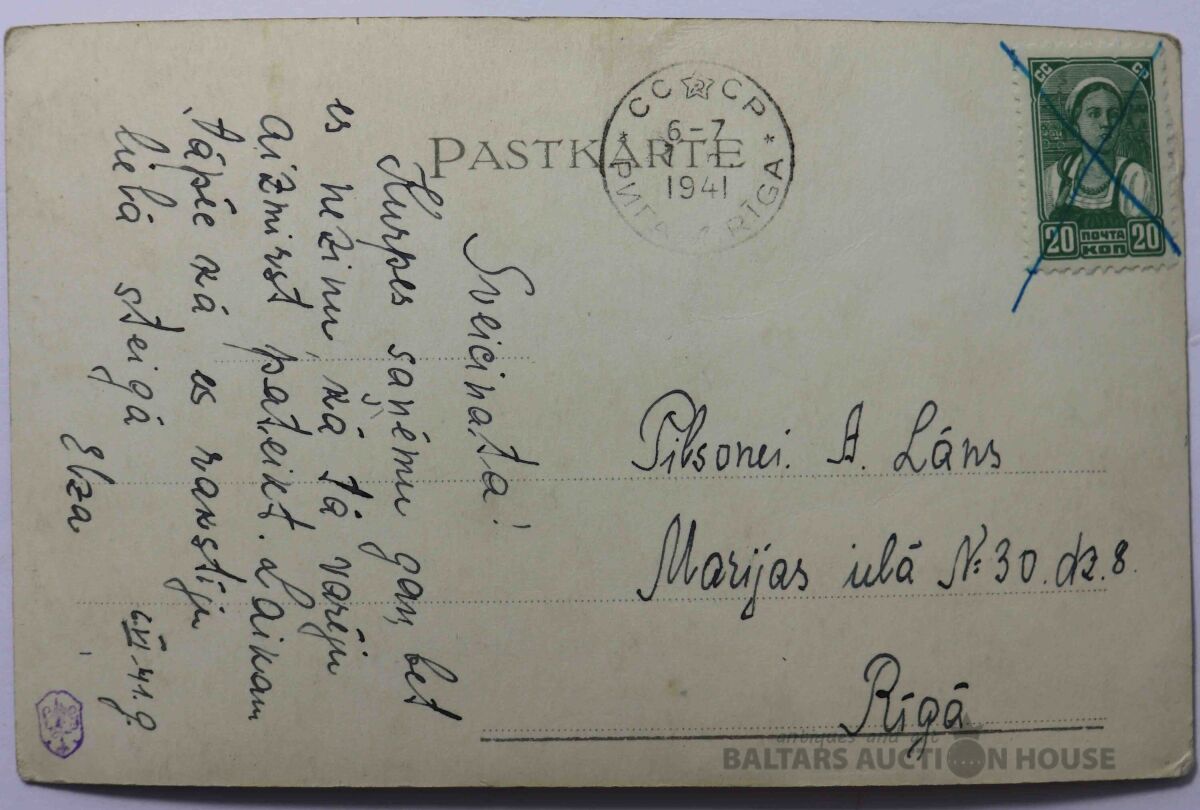 PASTKARTE
СС СР
6-7
1941
РИГА RĪGA
СС СР
20 ПОЧТА КОП 20
Sveicinata!
Kurpes saņēmu gan, bet
es nezinu, kā tā varēju
aizmirst pateikt. Laikam
tāpēc kā es rakstīju
lielā steigā
Elza
6 VI-41.g.
Pilsonei. A. Lāns
Marijas ielā №30. dz.8.
Rīgā
antiques and art
BALTARS AUCTION HOUSE